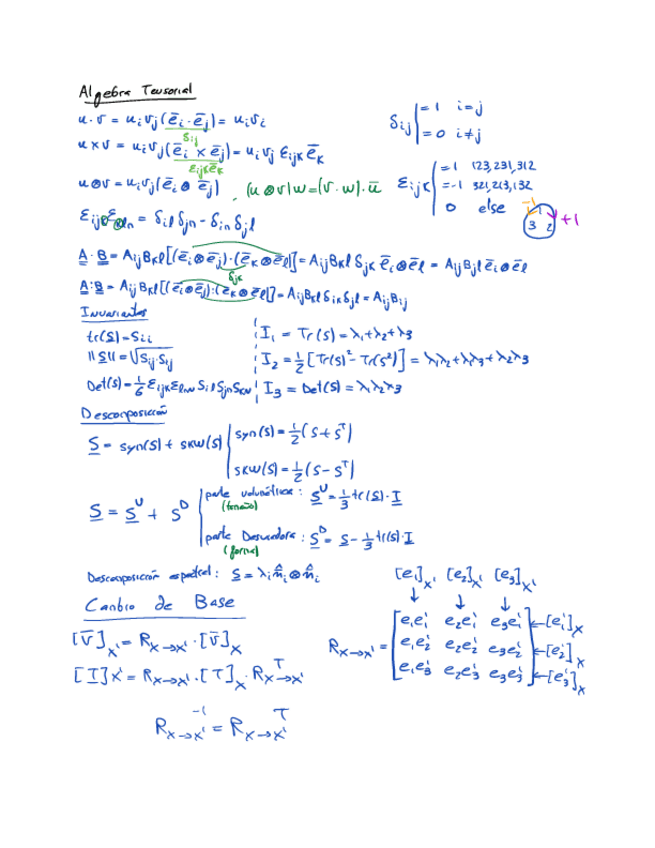 Algebra Tensorial
u · v = uᵢvⱼ(ēᵢ · ēⱼ) = uᵢvᵢ
δᵢⱼ
δᵢⱼ | = 1 i=j
= 0 i≠j
u × v = uᵢvⱼ(ēᵢ × ēⱼ) = uᵢvⱼ εᵢⱼₖ ēₖ
εᵢⱼₖēₖ
u⊗v = uᵢvⱼ(ēᵢ ⊗ ēⱼ) , (u⊗v)w = (v·w)·ū
εᵢⱼₖ | = 1 123,231,312
= -1 321,213,132
0 else
-1 +1
1
3 2
δᵢₗ δⱼₙ - δᵢₙ δⱼₗ
A · B = AᵢⱼBₖₗ[(ēᵢ⊗ēⱼ)·(ēₖ⊗ēₗ)] = AᵢⱼBₖₗ δⱼₖ ēᵢ⊗ēₗ = AᵢⱼBⱼₗ ēᵢ⊗ēₗ
δⱼₖ
A:B = AᵢⱼBₖₗ[(ēᵢ⊗ēⱼ):(ēₖ⊗ēₗ)] = AᵢⱼBₖₗδᵢₖδⱼₗ = AᵢⱼBᵢⱼ
Invariantes
tr(S) = Sᵢᵢ
I₁ = Tr(S) = λ₁+λ₂+λ₃
||S|| = √Sᵢⱼ·Sᵢⱼ
I₂ = 1/2 [Tr(S)² - Tr(S²)] = λ₁λ₂+λ₁λ₃+λ₂λ₃
Det(S) = 1/6 εᵢⱼₖ
I₃ = Det(S) = λ₁λ₂λ₃
Descomposición
S = syn(S) + skw(S) | syn(S) = 1/2 (S+Sᵀ)
skw(S) = 1/2 (S-Sᵀ)
S = Sᵛ + Sᴰ | parte volumétrica: Sᵛ = 1/3 tr(S)·I
(tamaño)
parte Desviadora: Sᴰ = S - 1/3 tr(S)·I
(forma)
Descomposición espectral: S = λᵢ n̂ᵢ⊗n̂ᵢ
Cambio de Base
[e₁]ₓ' [e₂]ₓ' [e₃]ₓ'
↓ ↓ ↓
[v̄]ₓ' = Rₓ→ₓ' · [v̄]ₓ
[T]x' = Rₓ→ₓ' · [T]ₓ · Rₓ→ₓ'ᵀ
Rₓ→ₓ' = [e₁e₁' e₂e₁' e₃e₁'] ←[e₁']ₓ
[e₁e₂' e₂e₂' e₃e₂'] ←[e₂']ₓ
[e₁e₃' e₂e₃' e₃e₃'] ←[e₃']ₓ
Rₓ→ₓ'⁻¹ = Rₓ→ₓ'ᵀ